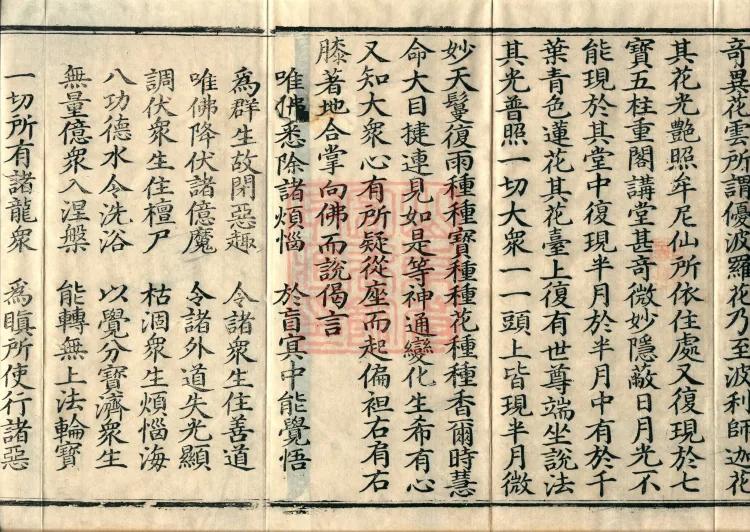 奇異花雲所謂優波羅花乃至波利師迦花
其花光艷照牟尼仙所依住處又復現於七
寶五柱重閣講堂甚奇微妙隱蔽日月光不
能現於其堂中復現半月於半月中有於千
葉青色蓮花其花臺上復有世尊端坐說法
其光普照一切大衆一一頭上皆現半月微
妙天鬘復雨種種寶種種花種種香爾時慧
命大目揵連見如是等神通變化生希有心
又知大衆心有所疑從座而起偏袒右肩右
膝著地合掌向佛而說偈言
唯佛悉除諸煩惱　於盲冥中能覺悟
爲群生故閉惡趣　令諸衆生住善道
唯佛降伏諸億魔　令諸外道失光顯
調伏衆生住檀尸　枯涸衆生煩惱海
八功德水令洗浴　以覺分寶濟衆生
無量億衆入涅槃　能轉無上法輪寶
一切所有諸龍衆　爲瞋所使行諸惡